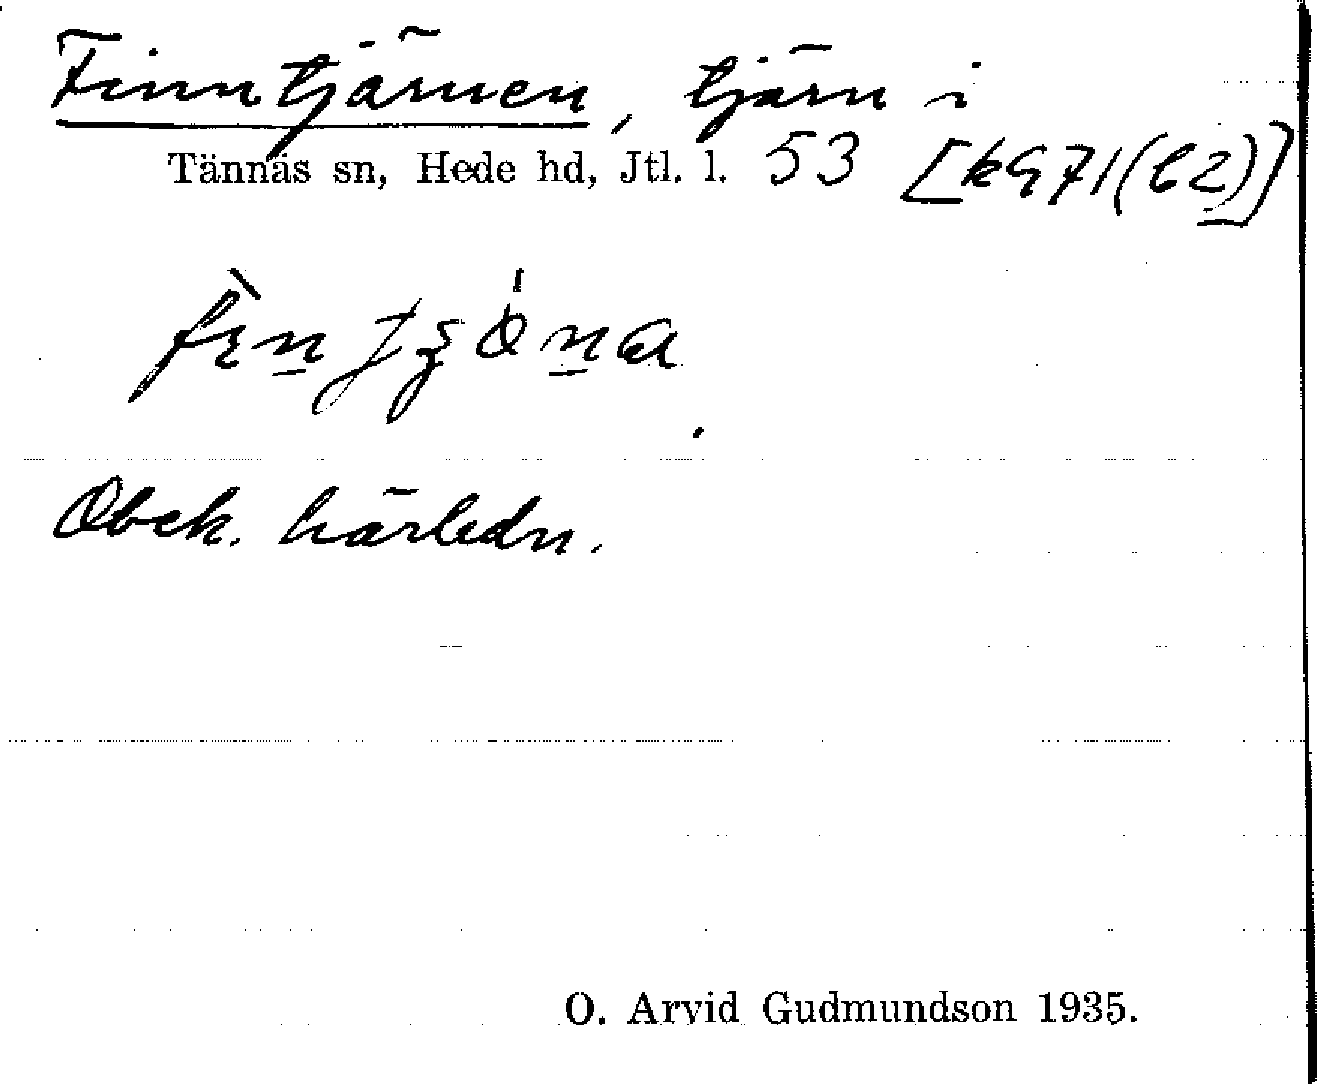 Finntjärnen, tjärn i
Tännäs sn, Hede hd, Jtl. l. 53 [k971(b2)]
Obek. härledn.
O. Arvid Gudmundson 1935.